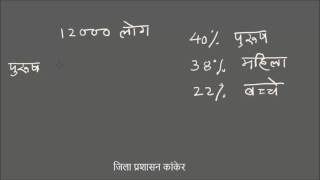 12000 लोग
40% पुरूष
38% महिला
22% बच्चे
पुरूष
जिला प्रशासन कांकेर